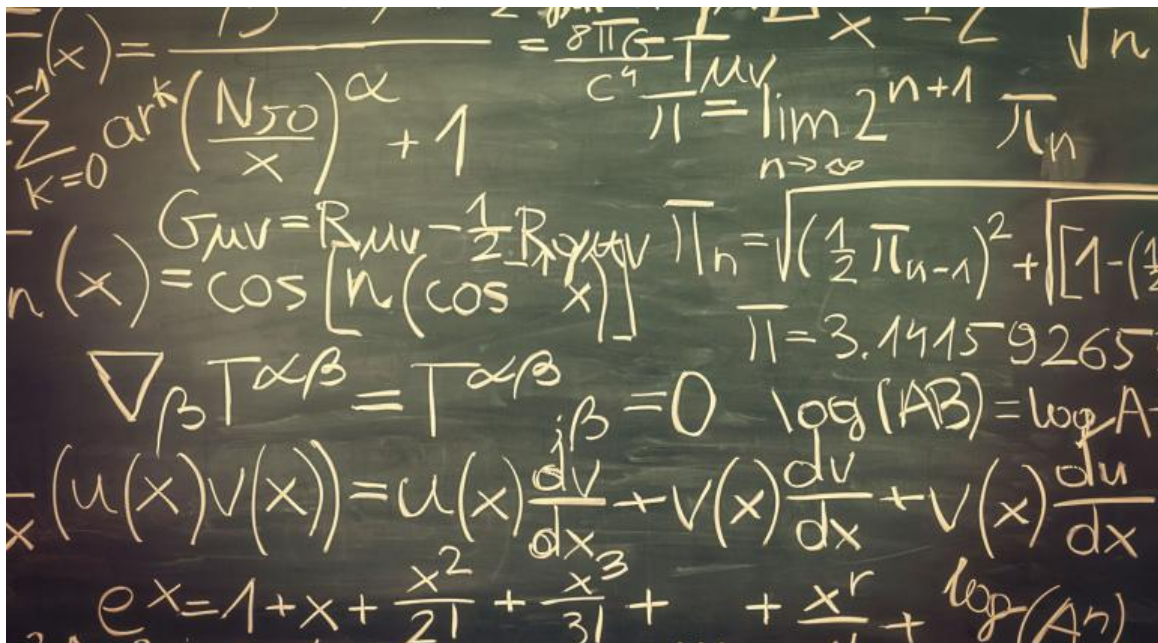 (x) = = 8πG/c⁴ Tμν x 2 √n
n-1 ∑ k=0 ar^k (N50/x)^α + 1
π = lim n→∞ 2^(n+1) πn
Gμν = Rμν - 1/2 R
πn = √((1/2 πn-1)² + √[1-(1/2
n(x) = cos[n(cos⁻¹ x)]
π = 3.14159265
∇β T^αβ = T^αβ ;β = 0
log(AB) = log A-
x (u(x)v(x)) = u(x) dv/dx + v(x) dv/dx + v(x) du/dx
e^x = 1 + x + x²/2! + x³/3! + + x^r + log(An)